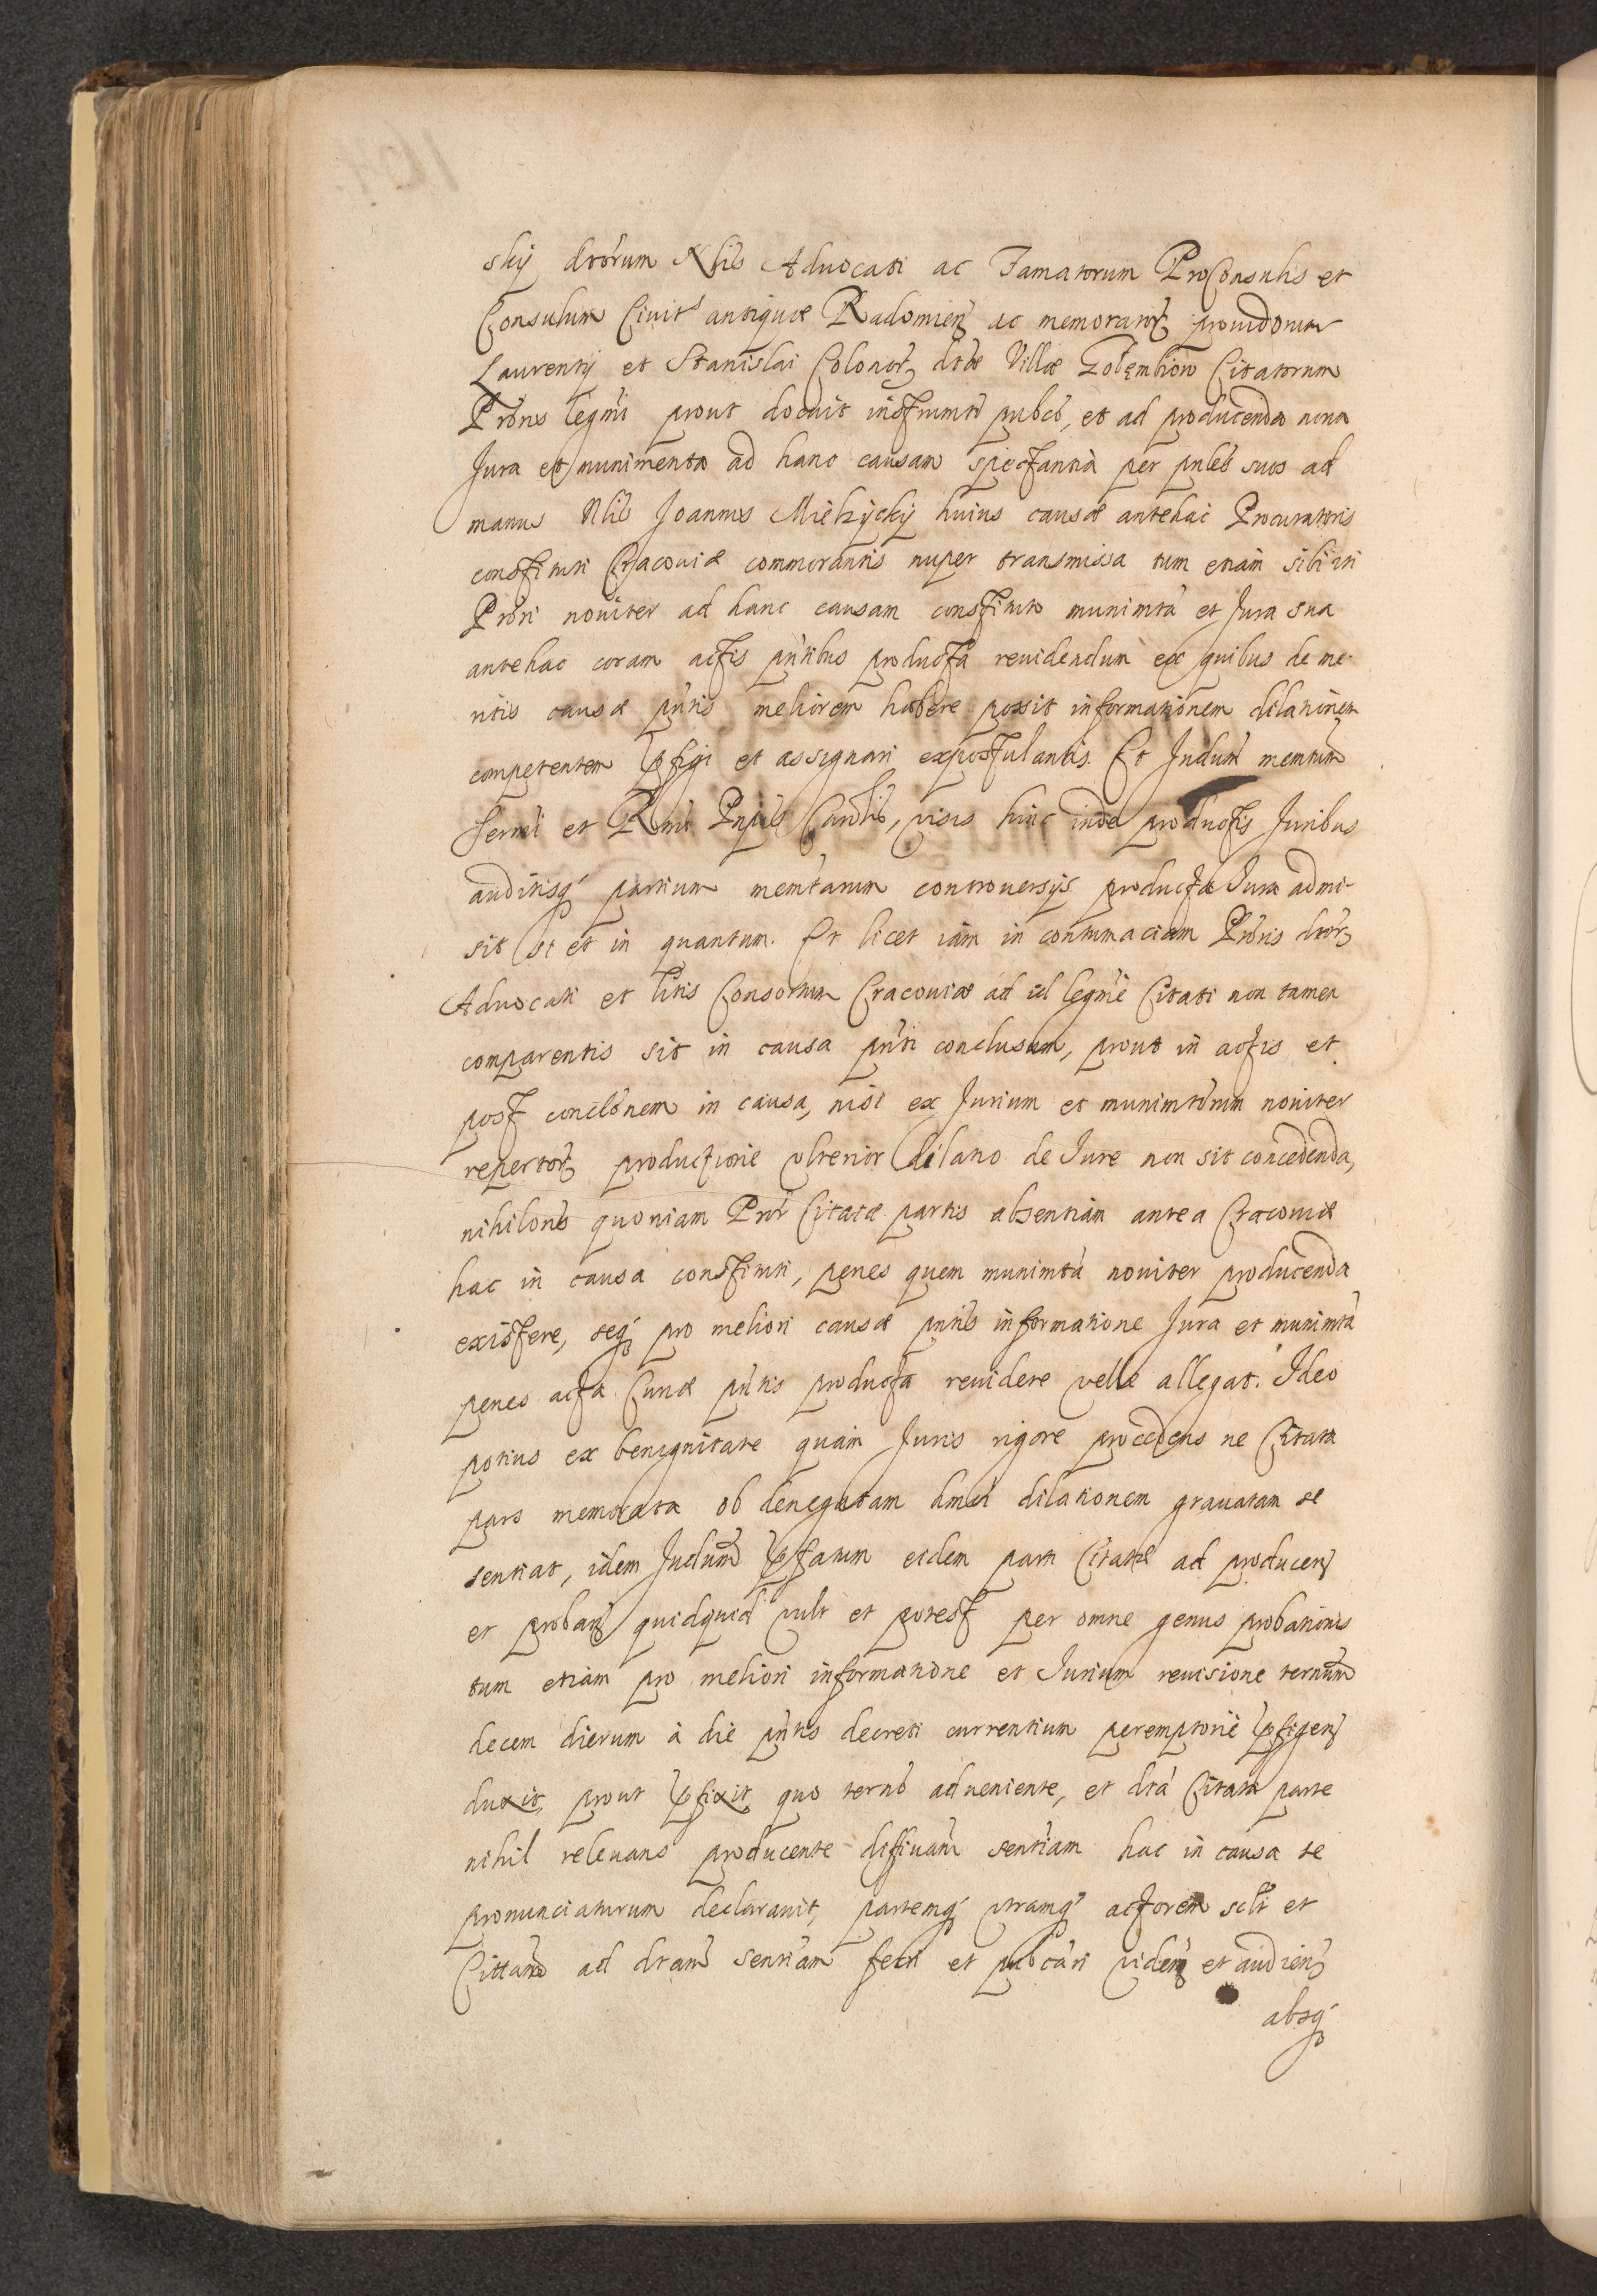 skij dctorum Nblis Advocati ac Famatorum ProConsulis et
Consulum Civitis antiquae Radomien ac memorator providorum
Laurentij et Stanislai Colonor dctae Villae Gołembiow Citatorum
Procris legmi prout docuit instrumto pubco, et ad producenda nona
Jura et munimenta ad hanc causam spectantia per pnles suos ad
manus Nblis Joannis Mielzÿckÿ huius causae antehac Procuratoris
constituti Cracoviae commorantis nuper transmissa tum etiam sibi uti
Procri noviter ad hanc causam constituto munimta et Jura sua
antehac coram actis pntibus producta revidendum ex quibus de me-
ritis causae pntis meliorem habere possit informationem dilationem
competentem pfigi et assignari expostulantis. Et Judum memtum
Sermi et Rmi Pnpis Cardlis, visis hinc inde productis Juribus
auditisq partium memtarum controversijs producta Jura admi-
sit si et in quantum. Et licet iam in contumaciam Procris dctor
Advocati et litis Consortum Cracoviae ad id legme Citati non tamen
comparentis sit in causa pnti conclusum, prout in actis et
post conclonem in causa, nisi ex Jurium et munimtorum noviter
repertor productione ulterior dilatio de Jure non sit concedenda,
nihilons quoniam Procr Citatae partis absentiam antea Cracoviae
hac in causa constituti, penes quem munimta noviter producenda
existere, seq pro meliori causae pntis informatione Jura et munimta
penes acta Curiae pntis producta revidere velle allegat. Ideo
potius ex benignitate quam Juris rigore procedens ne Citata
pars memorata ob denegatam hmoi dilationem gravatam se
sentiat, idem Judum pfatum eidem parti Citatae ad producen
et proban quidquid vult et potest per omne genus probationis
tum etiam pro meliori informatione et Jurium revisione ternum
decem dierum à die pntis decreti currentium peremptorie pfigen
duxit, prout pfixit quo terno adveniente, et dcta Citata parte
nihil relevans producente diffivam sentiam hac in causa se
pronunciaturum declaravit, partemq utramq actorem sclt et
Cittam ad dctam sentiam ferri et pubcari viden et audien
absq